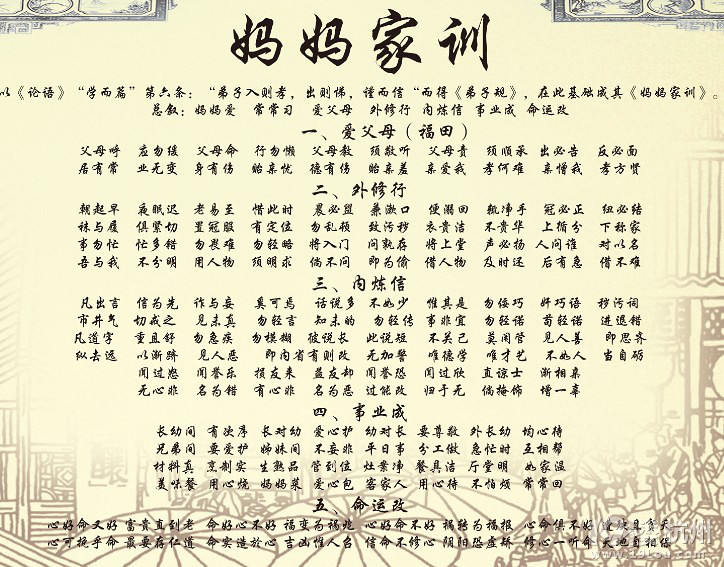 妈妈家训
以《论语》“学而篇”第六条：“弟子入则孝，出则悌，谨而信“而得《弟子规》，在此基础成其《妈妈家训》。
总叙：妈妈爱 常常习 爱父母 外修行 内炼信 事业成 命运改
一、爱父母（福田）
父母呼 应勿缓 父母命 行勿懒 父母教 须敬听 父母责 须顺承 出必告 反必面
居有常 业无变 身有伤 贻亲忧 德有伤 贻亲羞 亲爱我 孝何难 亲憎我 孝方贤
二、外修行
朝起早 夜眠迟 老易至 惜此时 晨必盥 兼漱口 便溺回 辄净手 冠必正 纽必结
袜与履 俱紧切 置冠服 有定位 勿乱顿 致污秽 衣贵洁 不贵华 上循分 下称家
事勿忙 忙多错 勿畏难 勿轻略 将入门 问孰存 将上堂 声必扬 人问谁 对以名
吾与我 不分明 用人物 须明求 倘不问 即为偷 借人物 及时还 后有急 借不难
三、内炼信
凡出言 信为先 诈与妄 奚可焉 话说多 不如少 惟其是 勿佞巧 奸巧语 秽污词
市井气 切戒之 见未真 勿轻言 知未的 勿轻传 事非宜 勿轻诺 苟轻诺 进退错
凡道字 重且舒 勿急疾 勿模糊 彼说长 此说短 不关己 莫闲管 见人善 即思齐
纵去远 以渐跻 见人恶 即内省 有则改 无加警 唯德学 唯才艺 不如人 当自砺
闻过怒 闻誉乐 损友来 益友却 闻誉恐 闻过欣 直谅士 渐相亲
无心非 名为错 有心非 名为恶 过能改 归于无 倘掩饰 增一辜
四、事业成
长幼间 有次序 长对幼 爱心护 幼对长 要尊敬 外长幼 均心待
兄弟间 要爱护 姊妹间 不妄非 平日事 分工做 急忙时 互相帮
材料真 烹制实 生熟品 管到位 灶案净 餐具洁 厅堂明 如家温
美味餐 用心烧 妈妈菜 爱心包 客家人 用心待 不怕烦 常常回
五、命运改
心好命又好 富贵直到老 命好心不好 福变为祸兆 心好命不好 祸转为福报 心命俱不好
心可挽乎命 最要存仁道 命实造於心 吉凶惟人召 信命不修心 阴阳恐虚矫 修心一听命 天地自相保